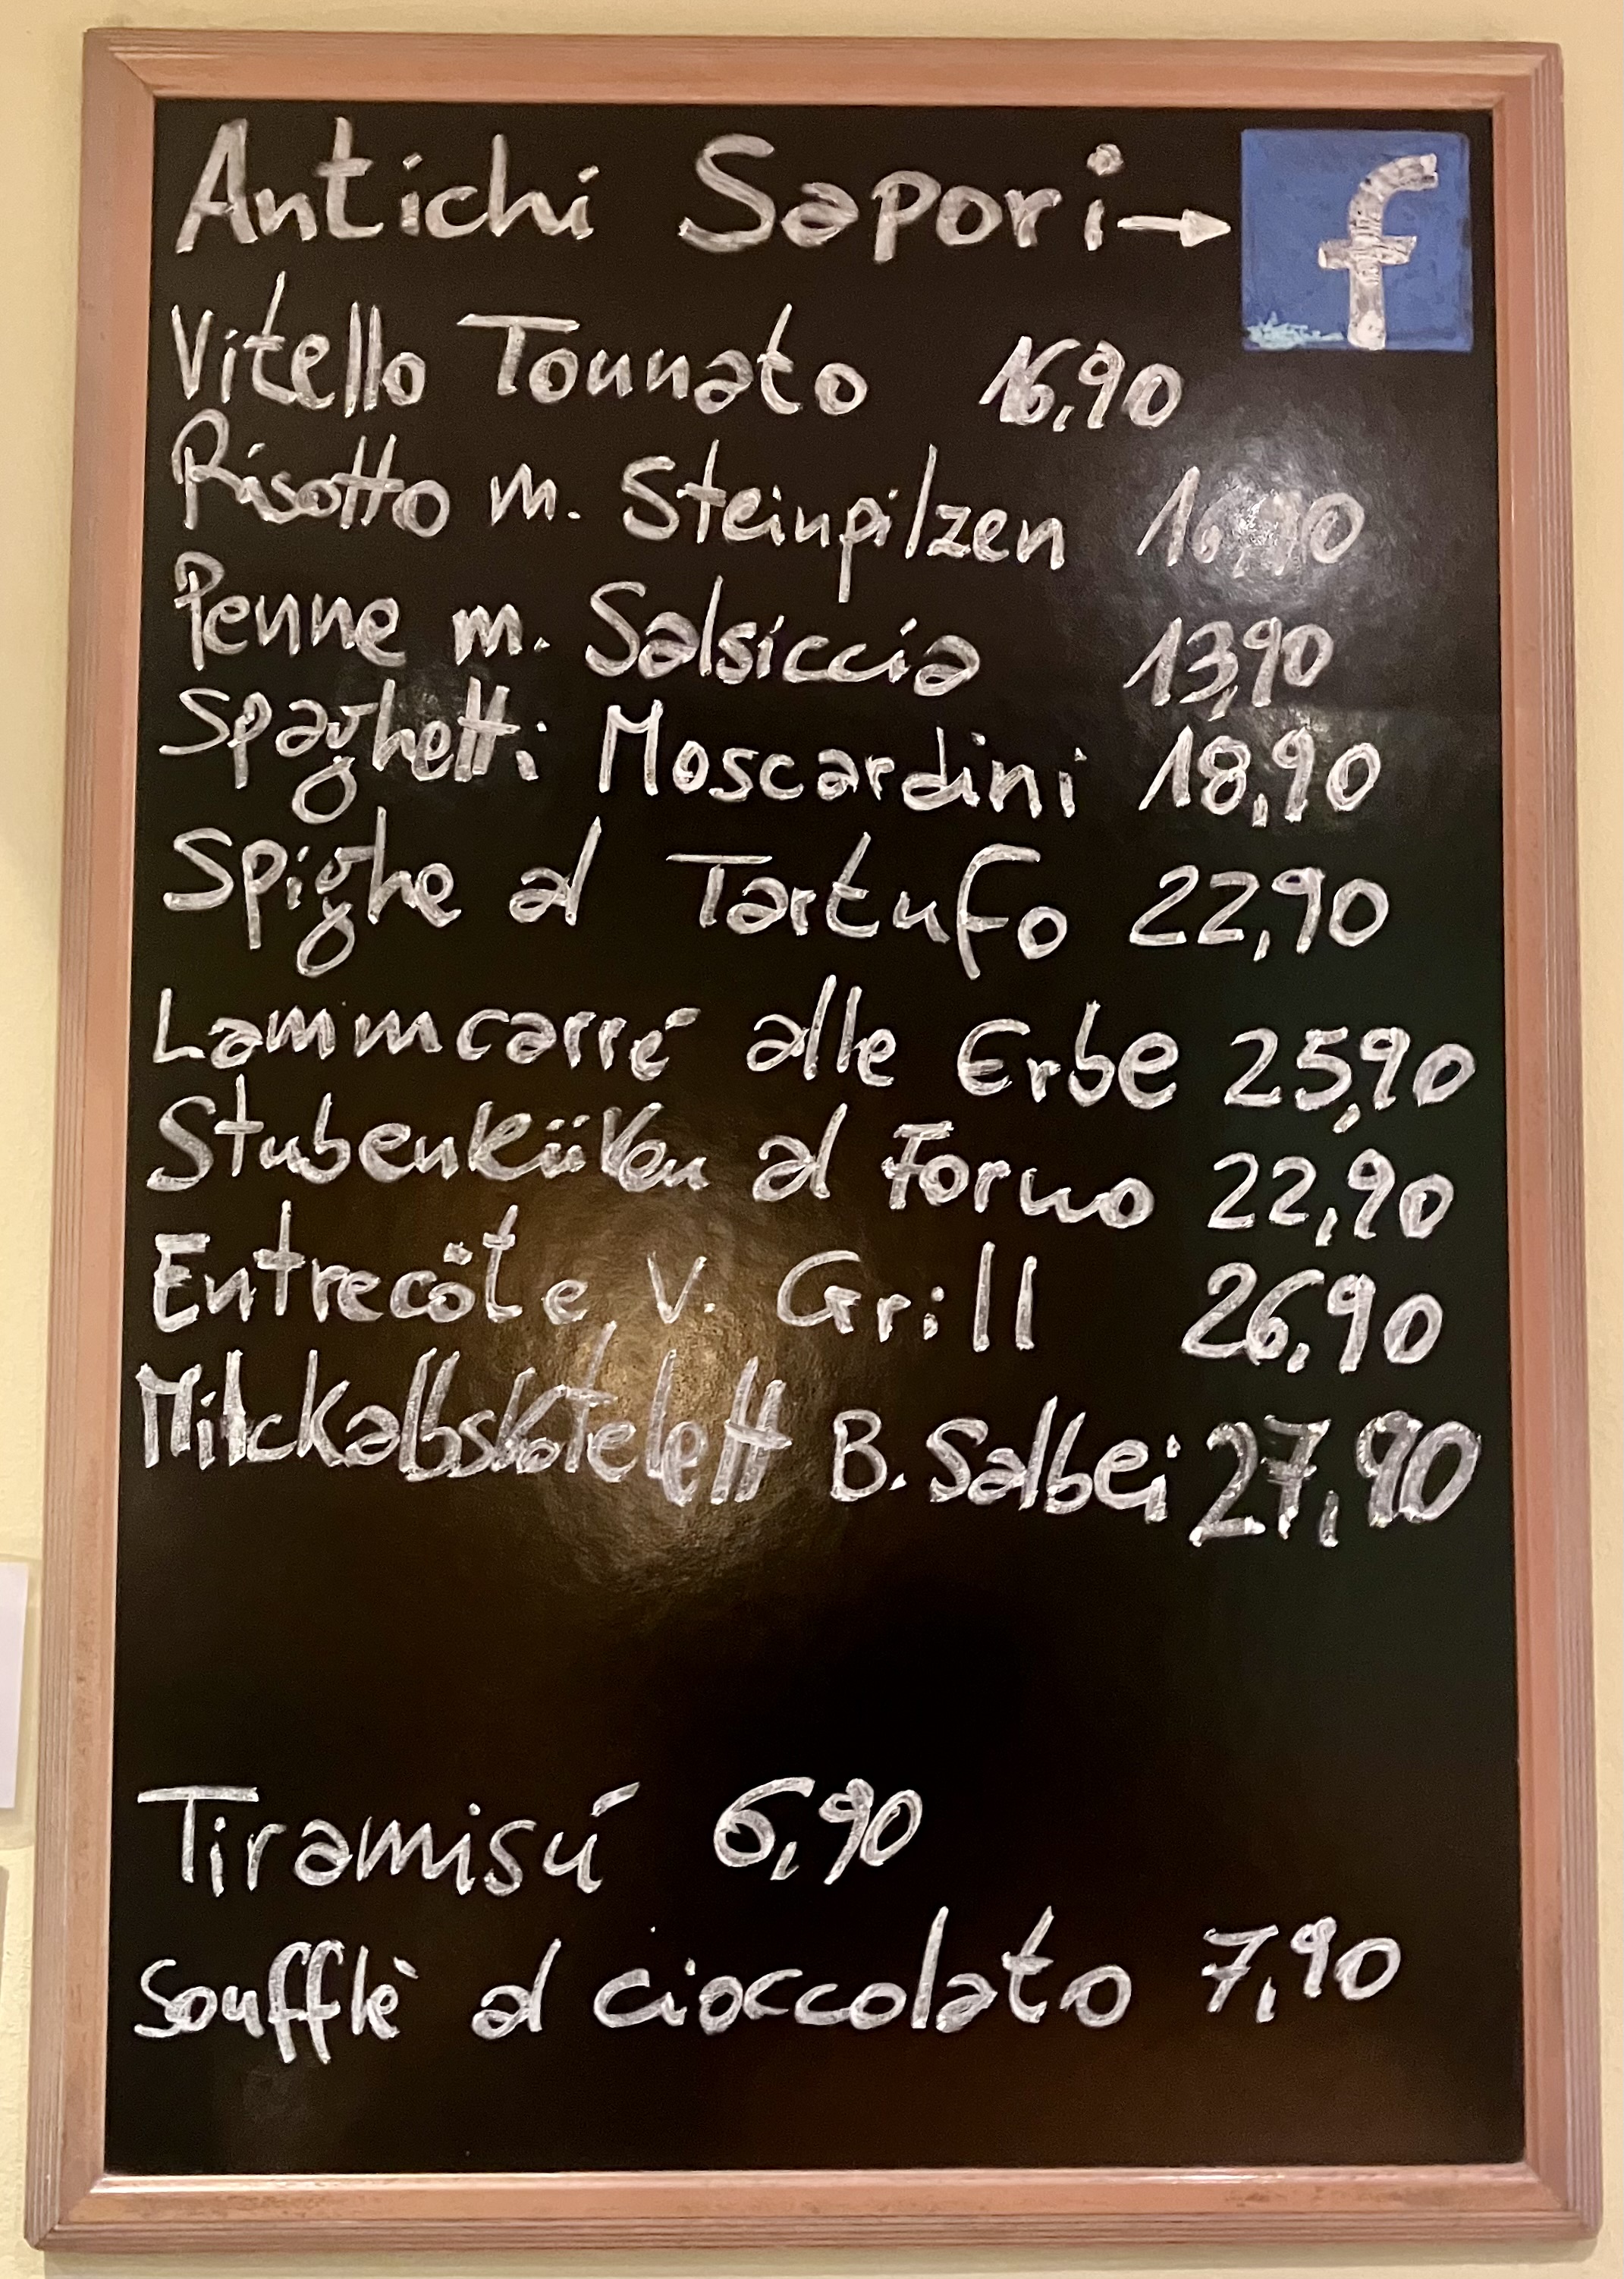 Antichi Sapori → f
Vitello Tonnato 16,90
Risotto m. Steinpilzen 16,90
Penne m. Salsiccia 13,90
Spaghetti Moscardini 18,90
Spighe al Tartufo 22,90
Lammcarré alle Erbe 25,90
Stubenküken al Forno 22,90
Entrecôte v. Grill 26,90
Milckalbskotelett B. Salbei 27,90
Tiramisú 6,90
Soufflè al cioccolato 7,90